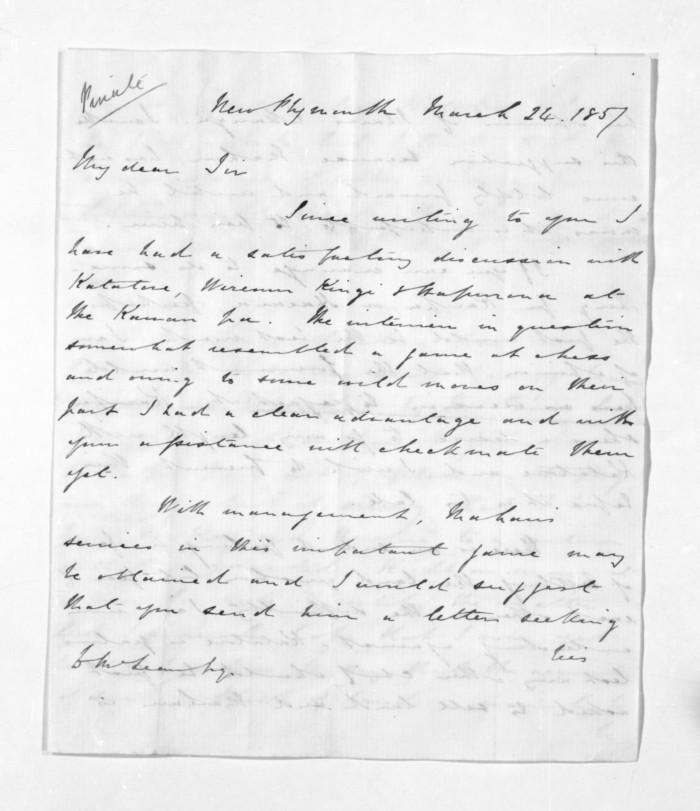 Private
New Plymouth March 24. 1857
My dear Sir
Since writing to you I
have had a satisfactory discussion with
Katatore, Wiremu Kingi &
at
the Kawau pa. The interview in question
somewhat resembled a game at chess
and owing to some wild moves on their
part I had a clear advantage and with
your assistance will checkmate them
yet.
With management,
services in this important game may
be obtained and I would suggest
that you send him a letter seeking
his
McLean Esq.